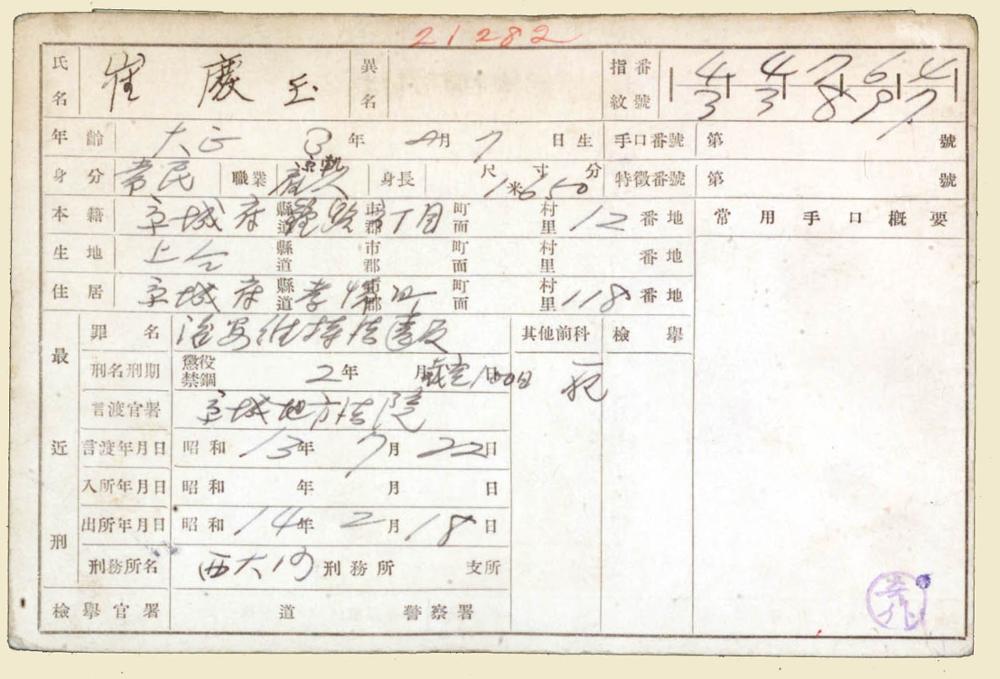 21282
氏名 崔慶玉 異名 指紋番號 4 4 7 6 4 / 3 3 8 9 7
年齡 大正3年 月7日生 手口番號 第 號
身分 常民 職業 身長 尺寸分 1米650 特徵番號 第 號
本籍 京城府 縣道 鍾路 市郡 丁目 町面 村里 12番地 常用手口槪要
生地 上仝 縣道 市郡 町面 村里 番地
住居 京城府 縣道 孝悌 市郡 町面 村里 118番地
最近刑
罪名 治安維持法違反 其他前科 檢擧
刑名刑期 懲役 禁錮 2年 月 日
言渡官署 京城地方法院
言渡年月日 昭和13年7月22日
入所年月日 昭和 年 月 日
出所年月日 昭和14年2月18日
刑務所名 西大門 刑務所 支所
檢擧官署 道 警察署